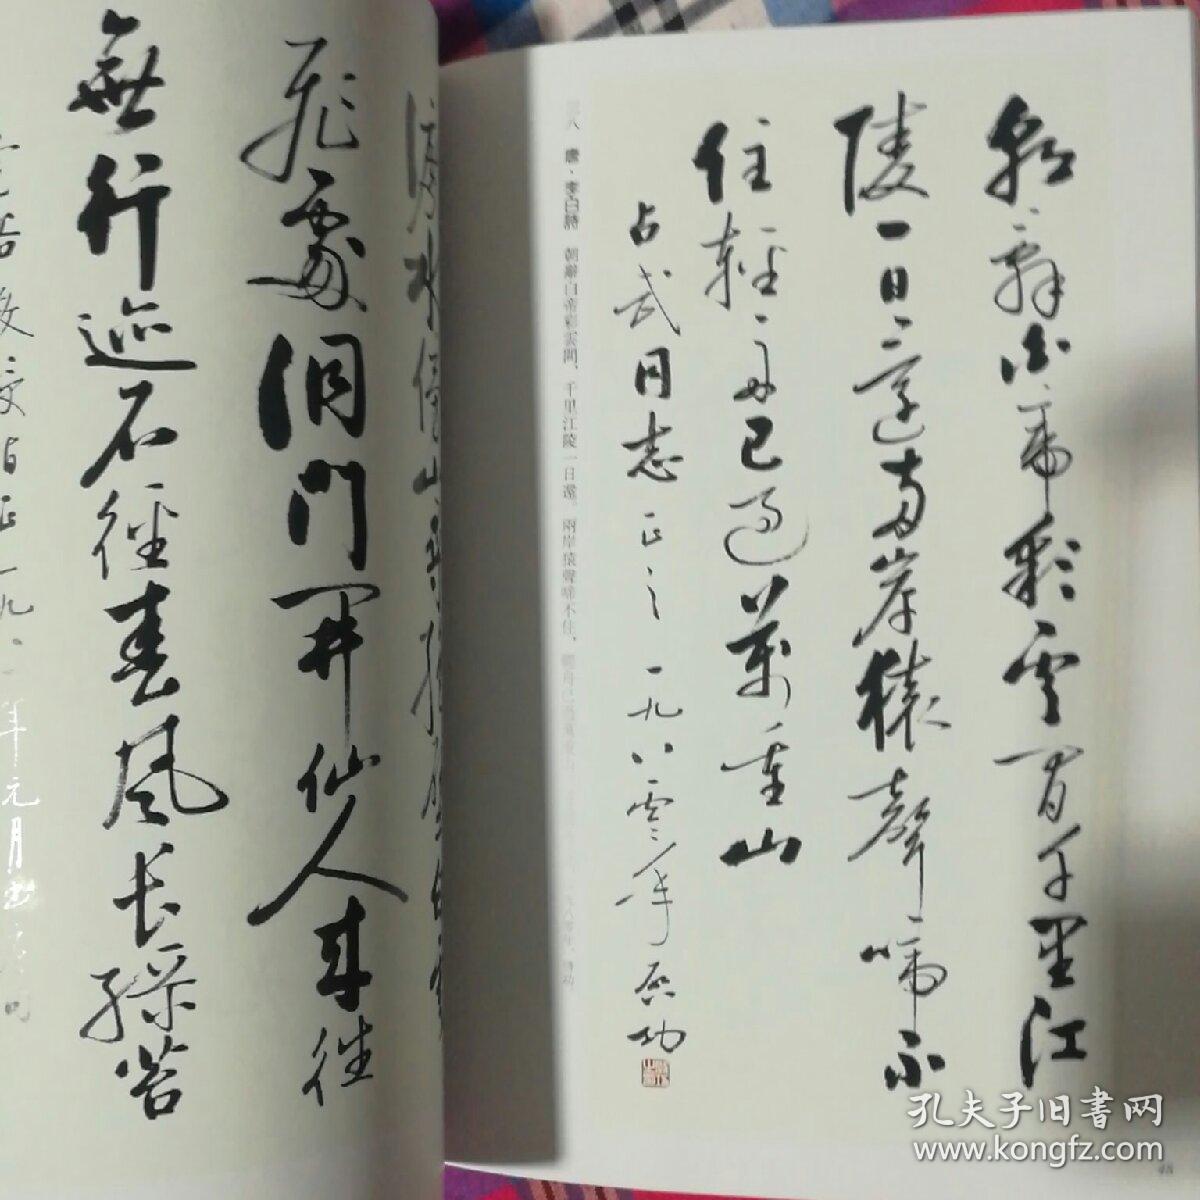 朝辞白帝彩雲間千里江
陵一日還两岸猿聲啼不
住輕舟已過萬重山
占武同志正之 一九八零年 启功
唐·李白詩 朝辭白帝彩雲間，千里江陵一日還。兩岸猿聲啼不住，輕舟已過萬重山
飛處洞門開仙人來往
無行迹石徑春風長緑苔
教授指正一九八 年元月
孔夫子旧書网
www.kongfz.com
48